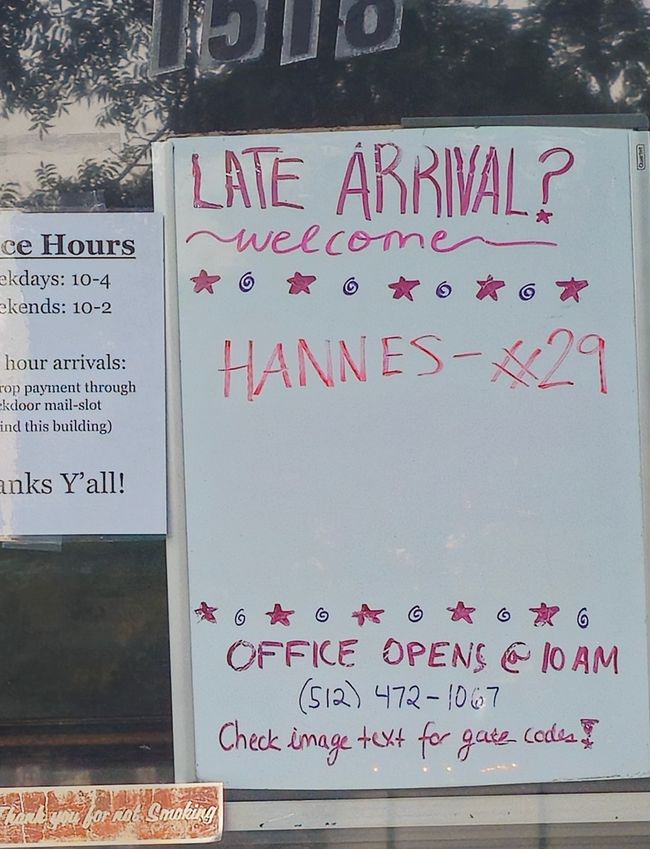 1518
LATE ARRIVAL?
~welcome~
HANNES - #29
OFFICE OPENS @ 10 AM
(512) 472-1067
Check image text for gate codes!
Quartet
ce Hours
ekdays: 10-4
ekends: 10-2
hour arrivals:
rop payment through
ckdoor mail-slot
ind this building)
anks Y'all!
Thank you for not Smoking